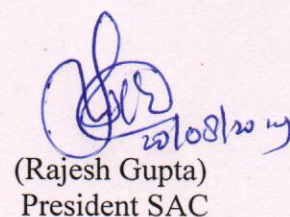 20/08/2019
(Rajesh Gupta)
President SAC